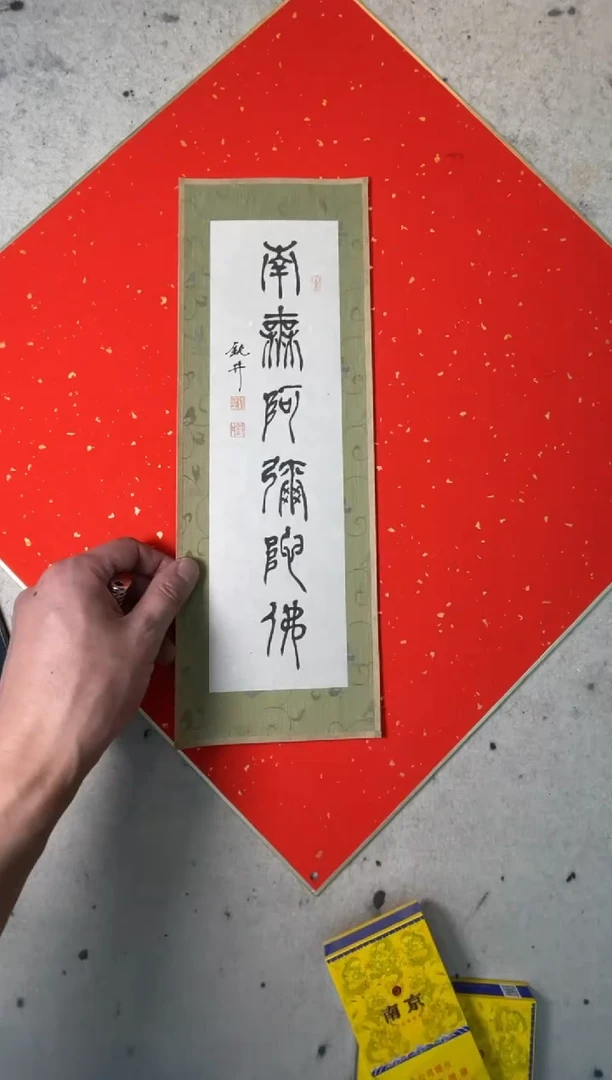 南無阿彌陀佛
南京